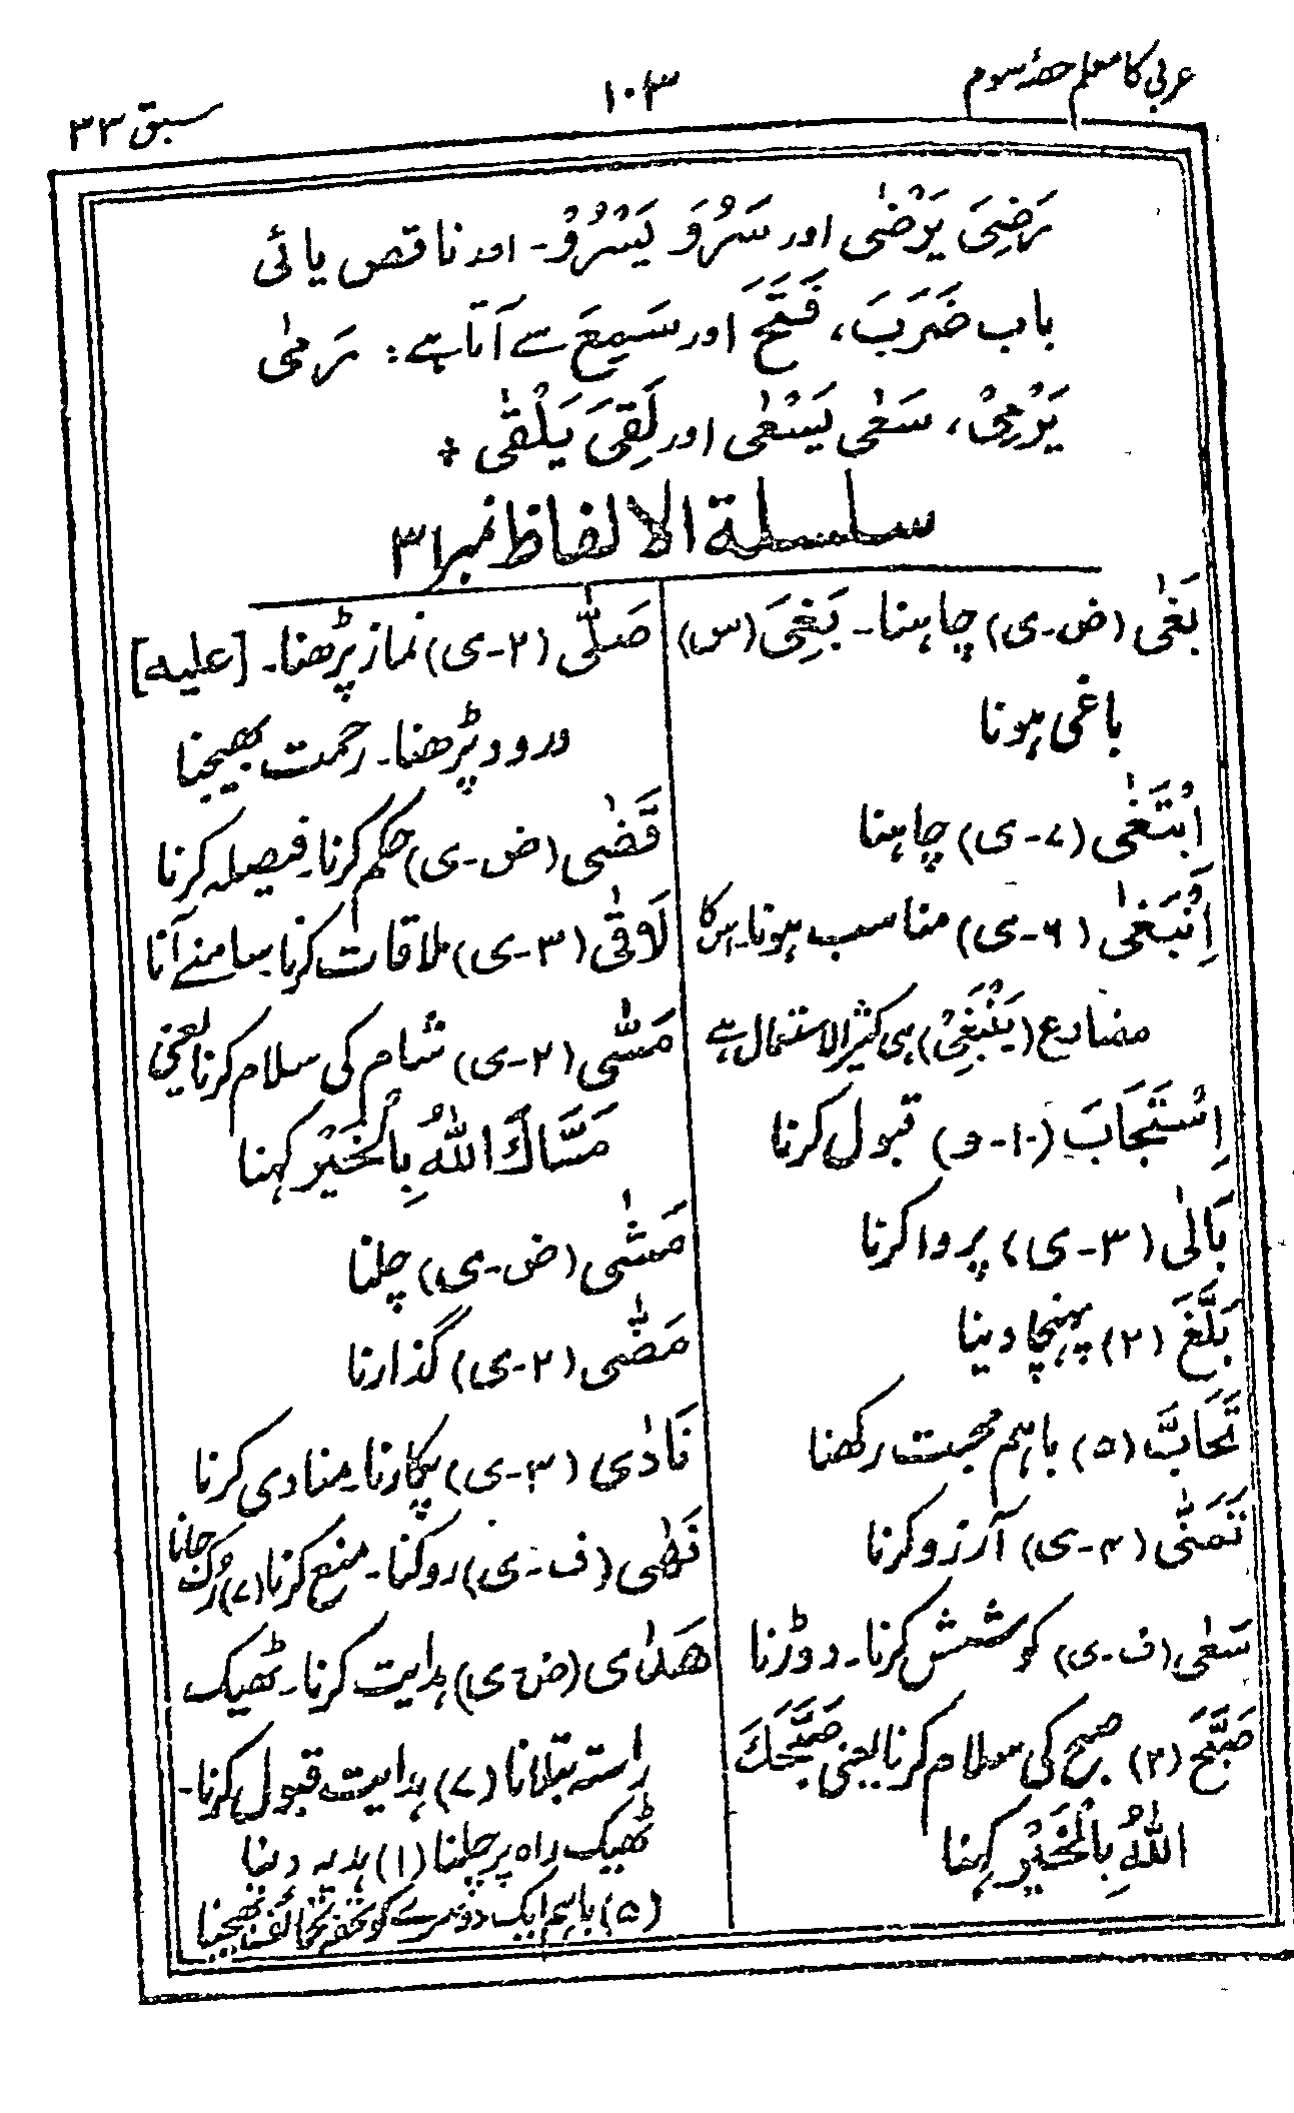 عربی کا معلم حصۂ سوم
۱۰۳
سبق ۳۳
رَضِیَ یَرْضٰی اور سَرُوَ یَسْرُوْ۔ اور ناقص یائی
باب ضَرَبَ، فَتَحَ اور سَمِعَ سے آتا ہے: رَمٰی
یَرْمِیْ، سَعٰی یَسْعٰی اور لَقِیَ یَلْقٰی ٭
سلسلة الالفاظ نمبر ۳۱
بَغٰی (ض۔ی) چاہنا۔ بَغِیَ (س)
باغی ہونا
اِبْتَغٰی (۷۔ی) چاہنا
اِنْبَغٰی (۶۔ی) مناسب ہونا۔ اس کا
مضارع (یَنْبَغِیْ) ہی کثیر الاستعمال ہے
اِسْتَجَابَ (۱۰۔و) قبول کرنا
بَالٰی (۳۔ی) پروا کرنا
بَلَّغَ (۲) پہنچا دینا
تَحَابَّ (۵) باہم محبت رکھنا
تَمَنّٰی (۴۔ی) آرزو کرنا
سَعٰی (ف۔ی) کوشش کرنا۔ دوڑنا
صَبَّحَ (۲) صبح کی سلام کرنا یعنی صَبَّحَكَ
اللّٰہُ بِالْخَیْرِ کہنا
صَلّٰی (۲۔ی) نماز پڑھنا۔ [علیہ]
درود پڑھنا۔ رحمت بھیجنا
قَضٰی (ض۔ی) حکم کرنا۔ فیصلہ کرنا
لَاقٰی (۳۔ی) ملاقات کرنا۔ سامنے آنا
مَسّٰی (۲۔ی) شام کی سلام کرنا یعنی
مَسَّاكَ اللّٰہُ بِالْخَیْرِ کہنا
مَشٰی (ض۔ی) چلنا
مَضّٰی (۲۔ی) گذارنا
نَادٰی (۳۔ی) پکارنا۔ منادی کرنا
نَهٰی (ف۔ی) روکنا۔ منع کرنا (۷) رُک جانا
هَدٰی (ض۔ی) ہدایت کرنا۔ ٹھیک
راستہ بتلانا (۷) ہدایت قبول کرنا۔
ٹھیک راہ پر چلنا (۱) ہدیہ دینا
(۵) باہم ایک دوسرے کو تحفہ تحائف بھیجنا